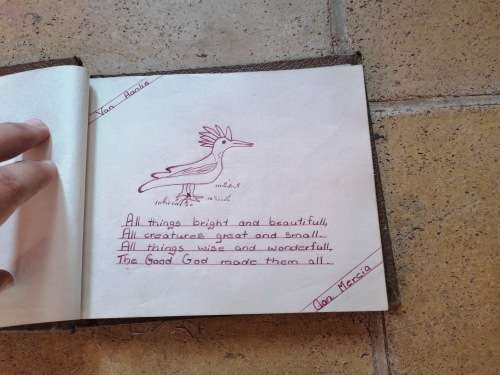 Van Hanlia
All things bright and beautiful,
All creatures great and small.
All things wise and wonderful,
The Good God made them all.
Aan Mercia